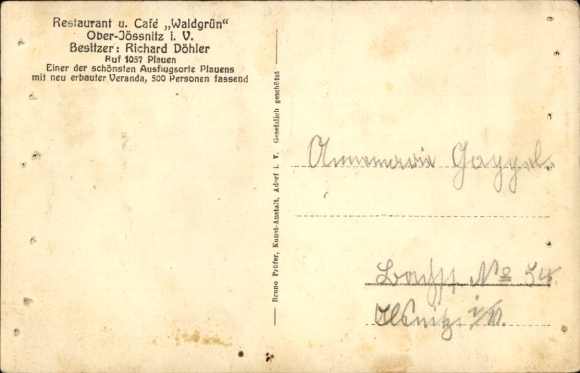 Restaurant u. Café „Waldgrün"
Ober-Jössnitz i. V.
Besitzer: Richard Döhler
Ruf 1057 Plauen
Einer der schönsten Ausflugsorte Plauens
mit neu erbauter Veranda, 500 Personen fassend
Bruno Prüfer, Kunst-Anstalt, Adorf i. V. Gesetzlich geschützt
Annemarie
No
i/V.